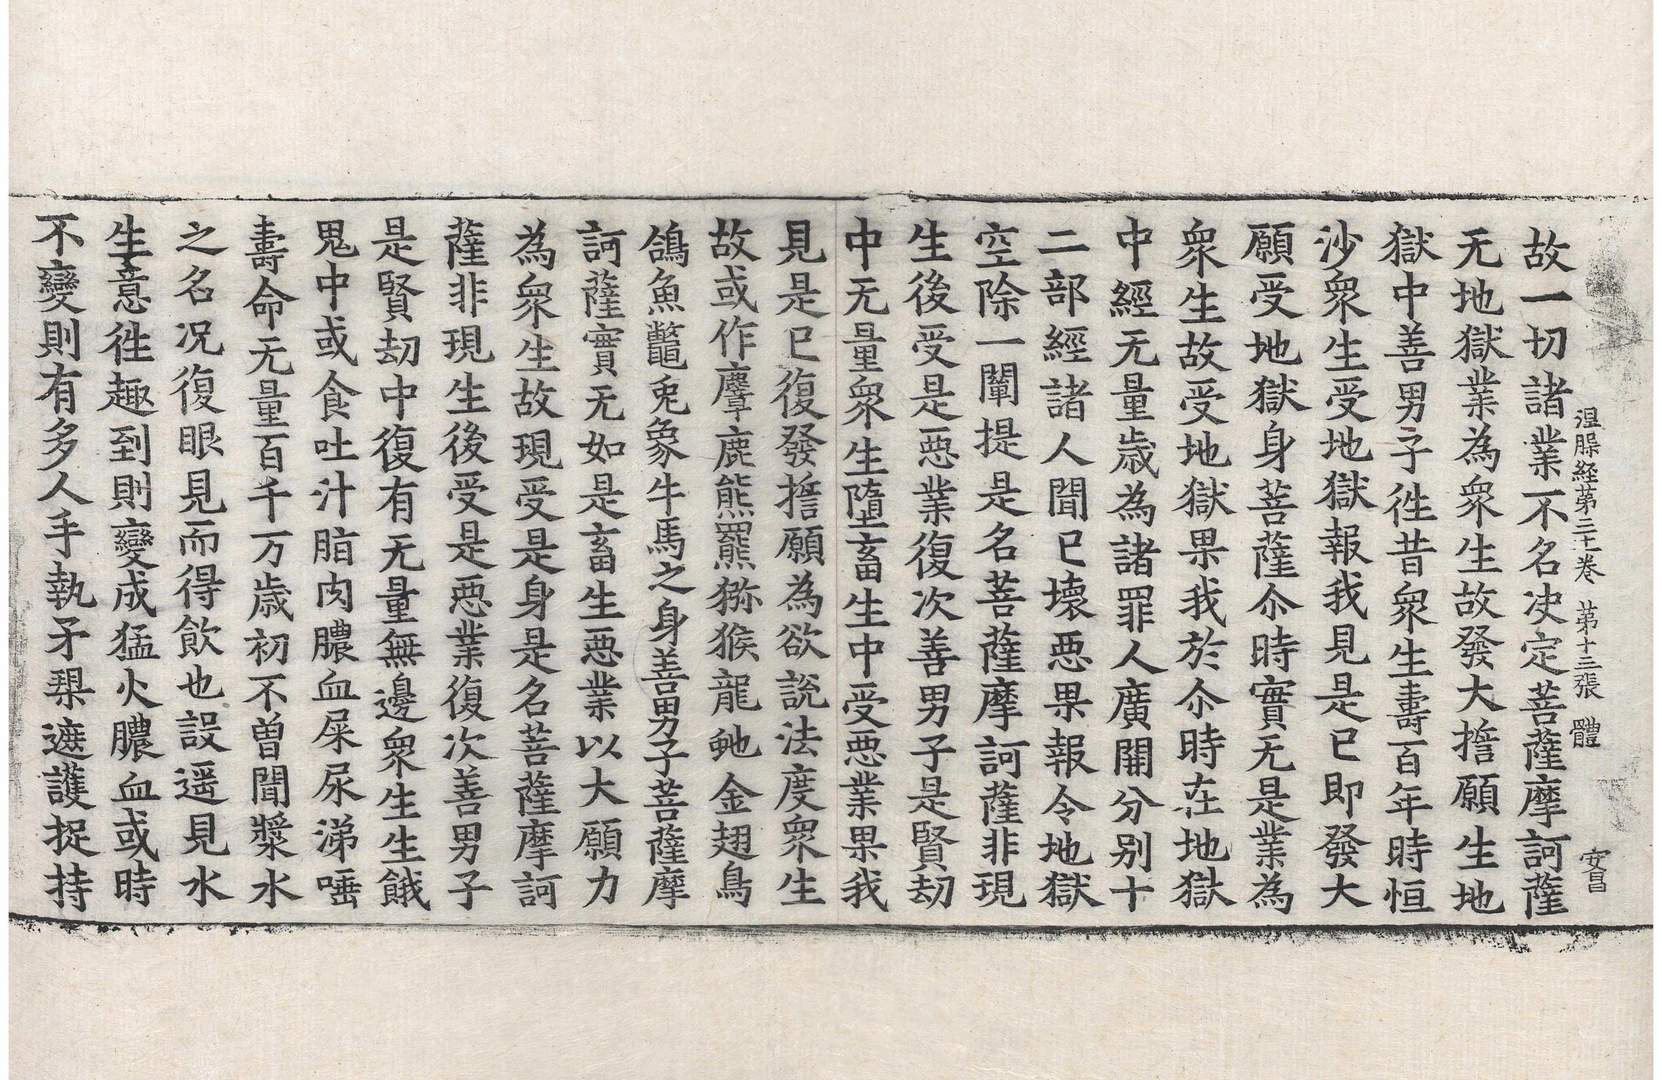 涅槃経苐三十一卷　苐十三張　體　安昌
故一切諸業不名决定菩薩摩訶薩
无地獄業為衆生故發大擔願生地
獄中善男子徃昔衆生壽百年時恒
沙衆生受地獄報我見是已即發大
願受地獄身菩薩尒時實无是業為
衆生故受地獄果我於尒時在地獄
中經无量歲為諸罪人廣開分别十
二部經諸人聞已壞惡果報令地獄
空除一闡提是名菩薩摩訶薩非現
生後受是惡業復次善男子是賢劫
中无量衆生墮畜生中受惡業果我
見是已復發擔願為欲說法度衆生
故或作麞鹿熊羆猕猴龍虵金翅鳥
鴿魚鼈兎象牛馬之身善男子菩薩摩
訶薩實无如是畜生惡業以大願力
為衆生故現受是身是名菩薩摩訶
薩非現生後受是惡業復次善男子
是賢劫中復有无量無邊衆生生餓
鬼中或食吐汁脂肉膿血屎尿涕唾
壽命无量百千万歲初不曾聞漿水
之名况復眼見而得飲也設遥見水
生意徃趣到則變成猛火膿血或時
不變則有多人手執矛槊遮護捉持